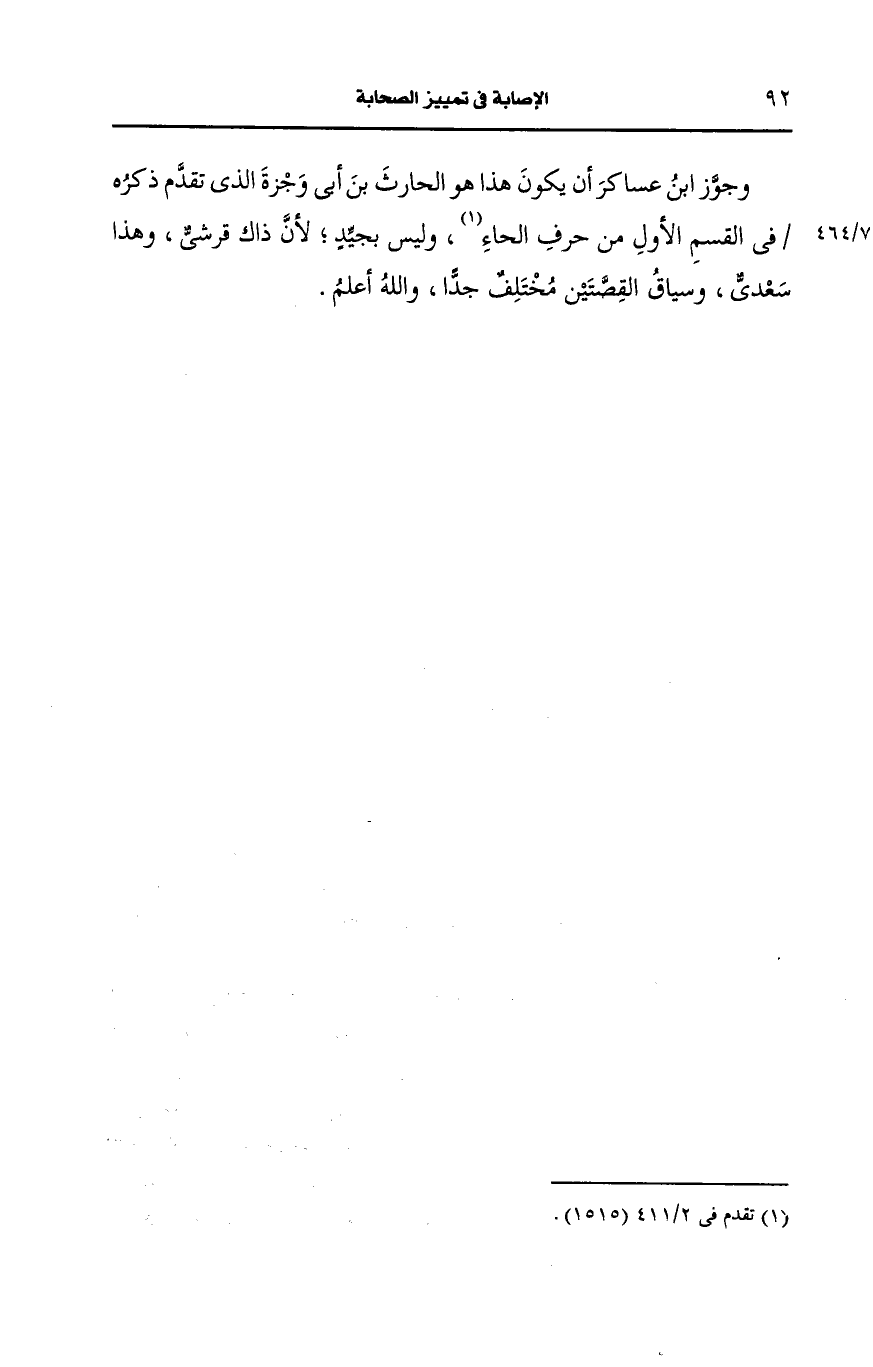 ٩٢ الإصابة فى تمييز الصحابة
وجوَّز ابنُ عساكرَ أن يكونَ هذا هو الحارثَ بنَ أبى وَجْزةَ الذى تقدَّم ذكرُه
٤٦٤/٧ / فى القسمِ الأولِ من حرفِ الحاءِ(١) ، وليس بجيِّدٍ ؛ لأنَّ ذاك قرشىٌّ ، وهذا
سَعْدىٌّ ، وسياقُ القِصَّتَيْن مُخْتَلِفٌ جدًّا ، واللهُ أعلمُ .
(١) تقدم فى ٤١١/٢ (١٥١٥) .